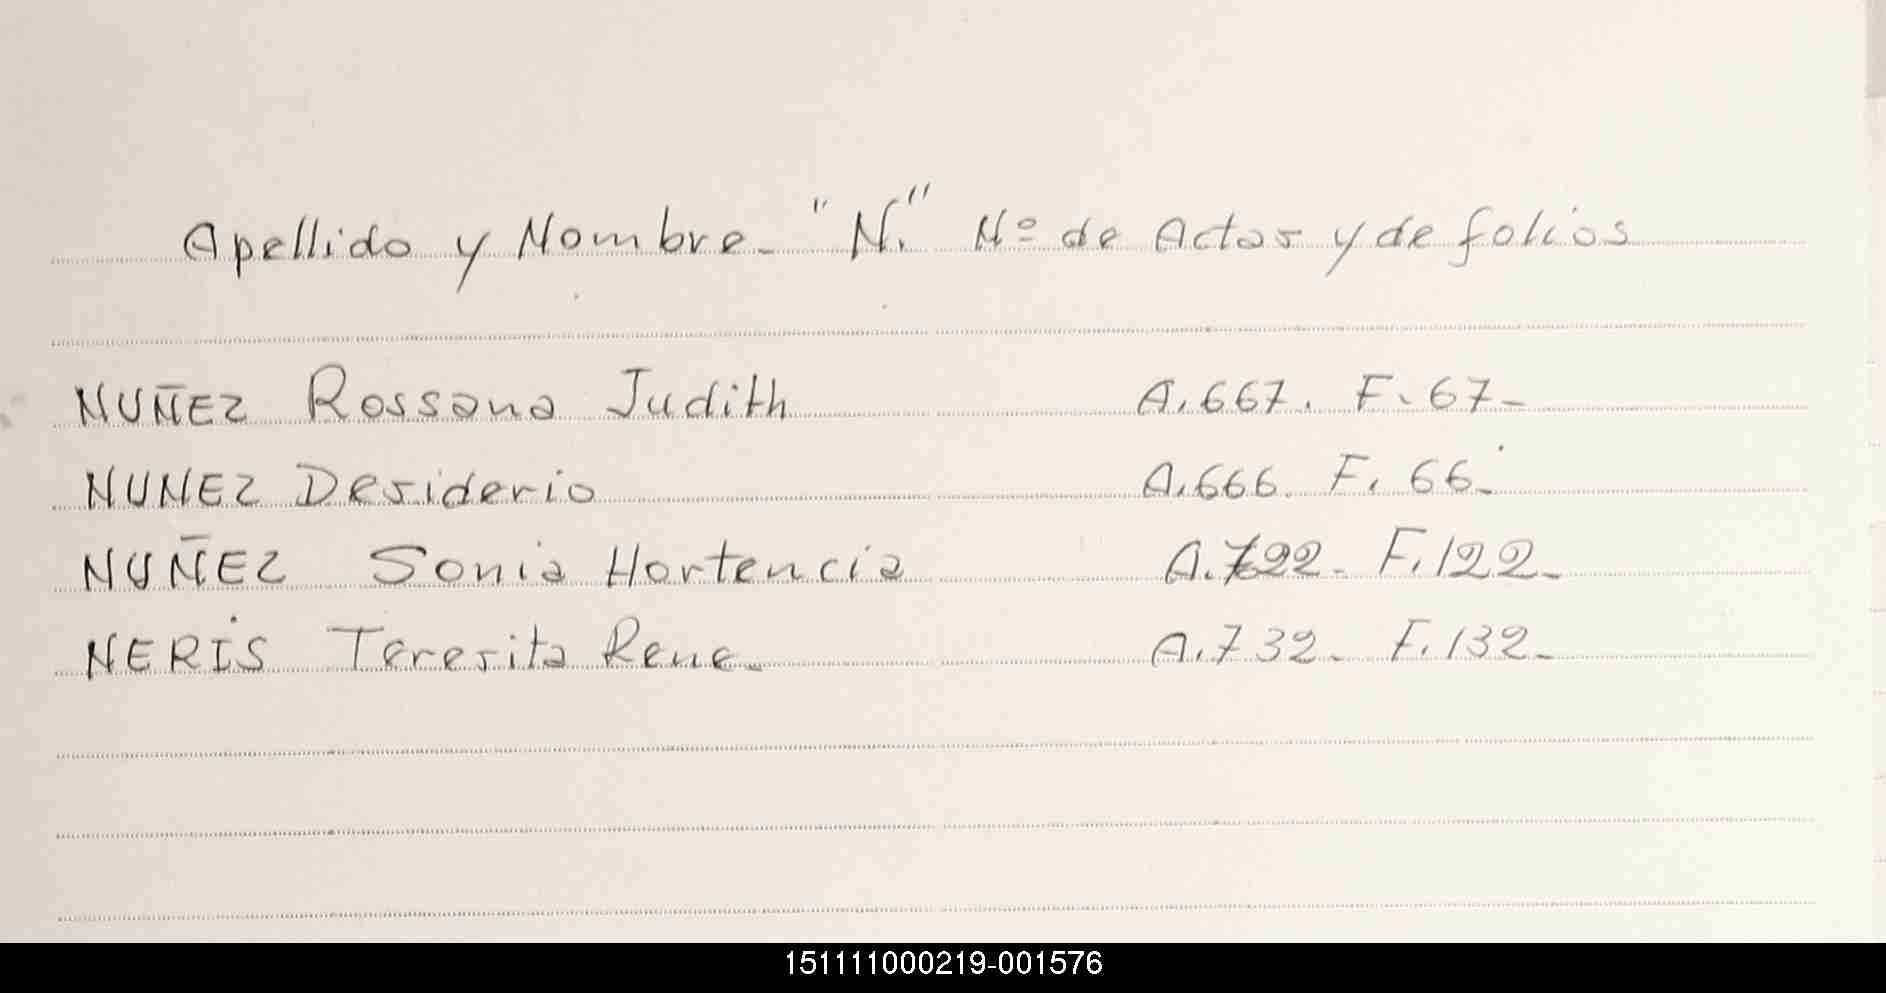 Apellido y Nombre- "N." Nº de Actas y de folios
NUÑEZ Rossana Judith A. 667. F. 67-
NUNEZ Desiderio A. 666. F. 66-
NUÑEZ Sonia Hortencia A. 722- F. 122-
NERIS Teresita Rene- A. 732- F. 132-
151111000219-001576